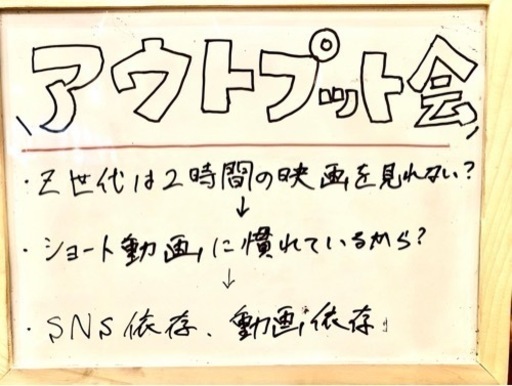 アウトプット会
・Z世代は2時間の映画を見れない?
↓
・ショート動画に慣れているから?
↓
・SNS依存、動画依存